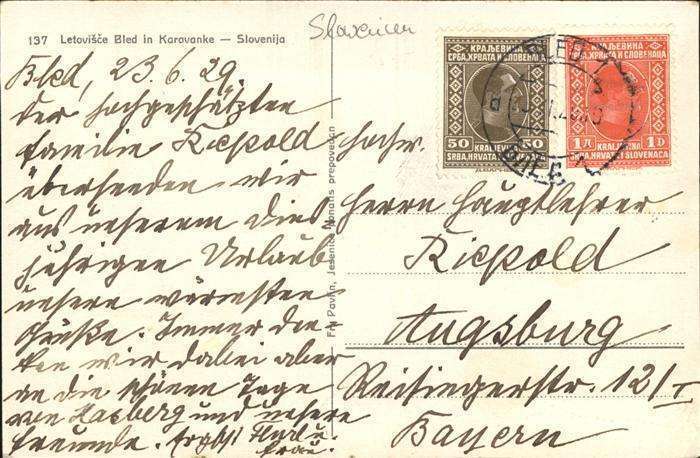 Slovenien
137 Letovišče Bled in Karavanke — Slovenija
Bled, 23.6.29.
Der hochgeschätzten
Familie Riepold
übersenden wir
aus unserem dies-
jährigen Urlaub
unsere wärmsten
Grüße. Immer den-
ken wir dabei aber
an die schönen Tage
von und unsere
Freunde.
Frau.
Fr. Pavlin, Jesenice Ponatis prepovedan
КРАЉЕВИНА
СРБА, ХРВАТА И СЛОВЕНАЦА
50 50
KRALJEVINA
SRBA, HRVATA I SLOVENACA
КРАЉЕВИНА
СРБА, ХРВАТА И СЛОВЕНАЦА
1 Д 1 D
KRALJEVINA
SRBA, HRVATA I SLOVENACA
BLED
Hochw.
Herrn Hauptlehrer
Riepold
Augsburg
Reisingerstr. 12/I
Bayern